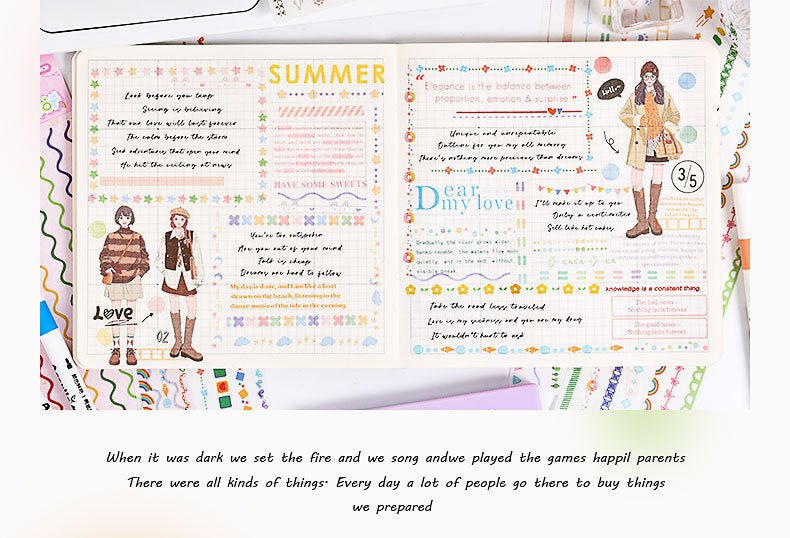 SUMMER
Look before you leap
Seeing is believing
That our love will last forever
The calm before the storm
Seek adventures that open your mind
He hit the ceiling at news
HAVE SOME SWEETS
You're too outspoken
Are you out of your mind
Talk is cheap
Dreams are hard to follow
My day is done, and I am like a boat
drawn on the beach, listening to the
dance-music of the tide in the evening.
Love
02
"Elegance is the balance between
proportion, emotion & surprise"
Hello
Unique and unrepeatable
Outline for you my all memory
There's nothing more precious than dreams
3/5
Dear
my love
I'll make it up to you
Only a centimeter
Sell like hot cakes
Gradually the river grows wider,
banks recede, the waters flow more
quietly, and in the end, without
visible break,
knowledge is a constant thing.
Take the road less traveled
Love is my sickness and you are my drug
It wouldn't hurt to ask
The bad news—
Nothing lasts forever.
The good news—
Nothing lasts forever.
When it was dark we set the fire and we song andwe played the games happil parents
There were all kinds of things. Every day a lot of people go there to buy things
we prepared